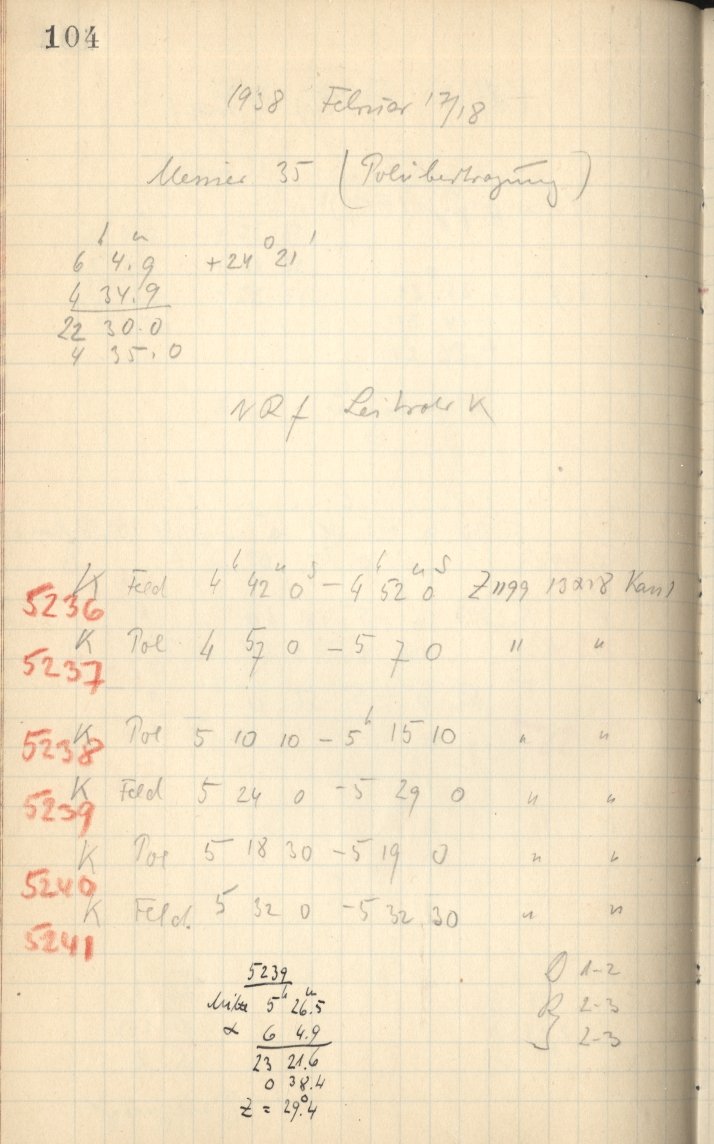 104
1938 Februar 17/18
Messier 35 (Polübertragung)
6 h 4.9 m +24° 21'
4 34.9
22 30.0
4 35.0
NRf Leitrohr K
5236 K Feld 4 h 42 m 0 s - 4 h 52 m 0 s 13x18
5237 K Pol 4 57 0 - 5 7 0 " "
5238 K Pol 5 10 10 - 5 h 15 10 " "
5239 K Feld 5 24 0 - 5 29 0 " "
5240 K Pol 5 18 30 - 5 19 0 " "
5241 K Feld. 5 32 0 - 5 32 30 " "
5239
Mitte 5 h 26.5 m
α 6 4.9
23 21.6
0 38.4
Z = 29°.4
1-2
R 2-3
S 2-3